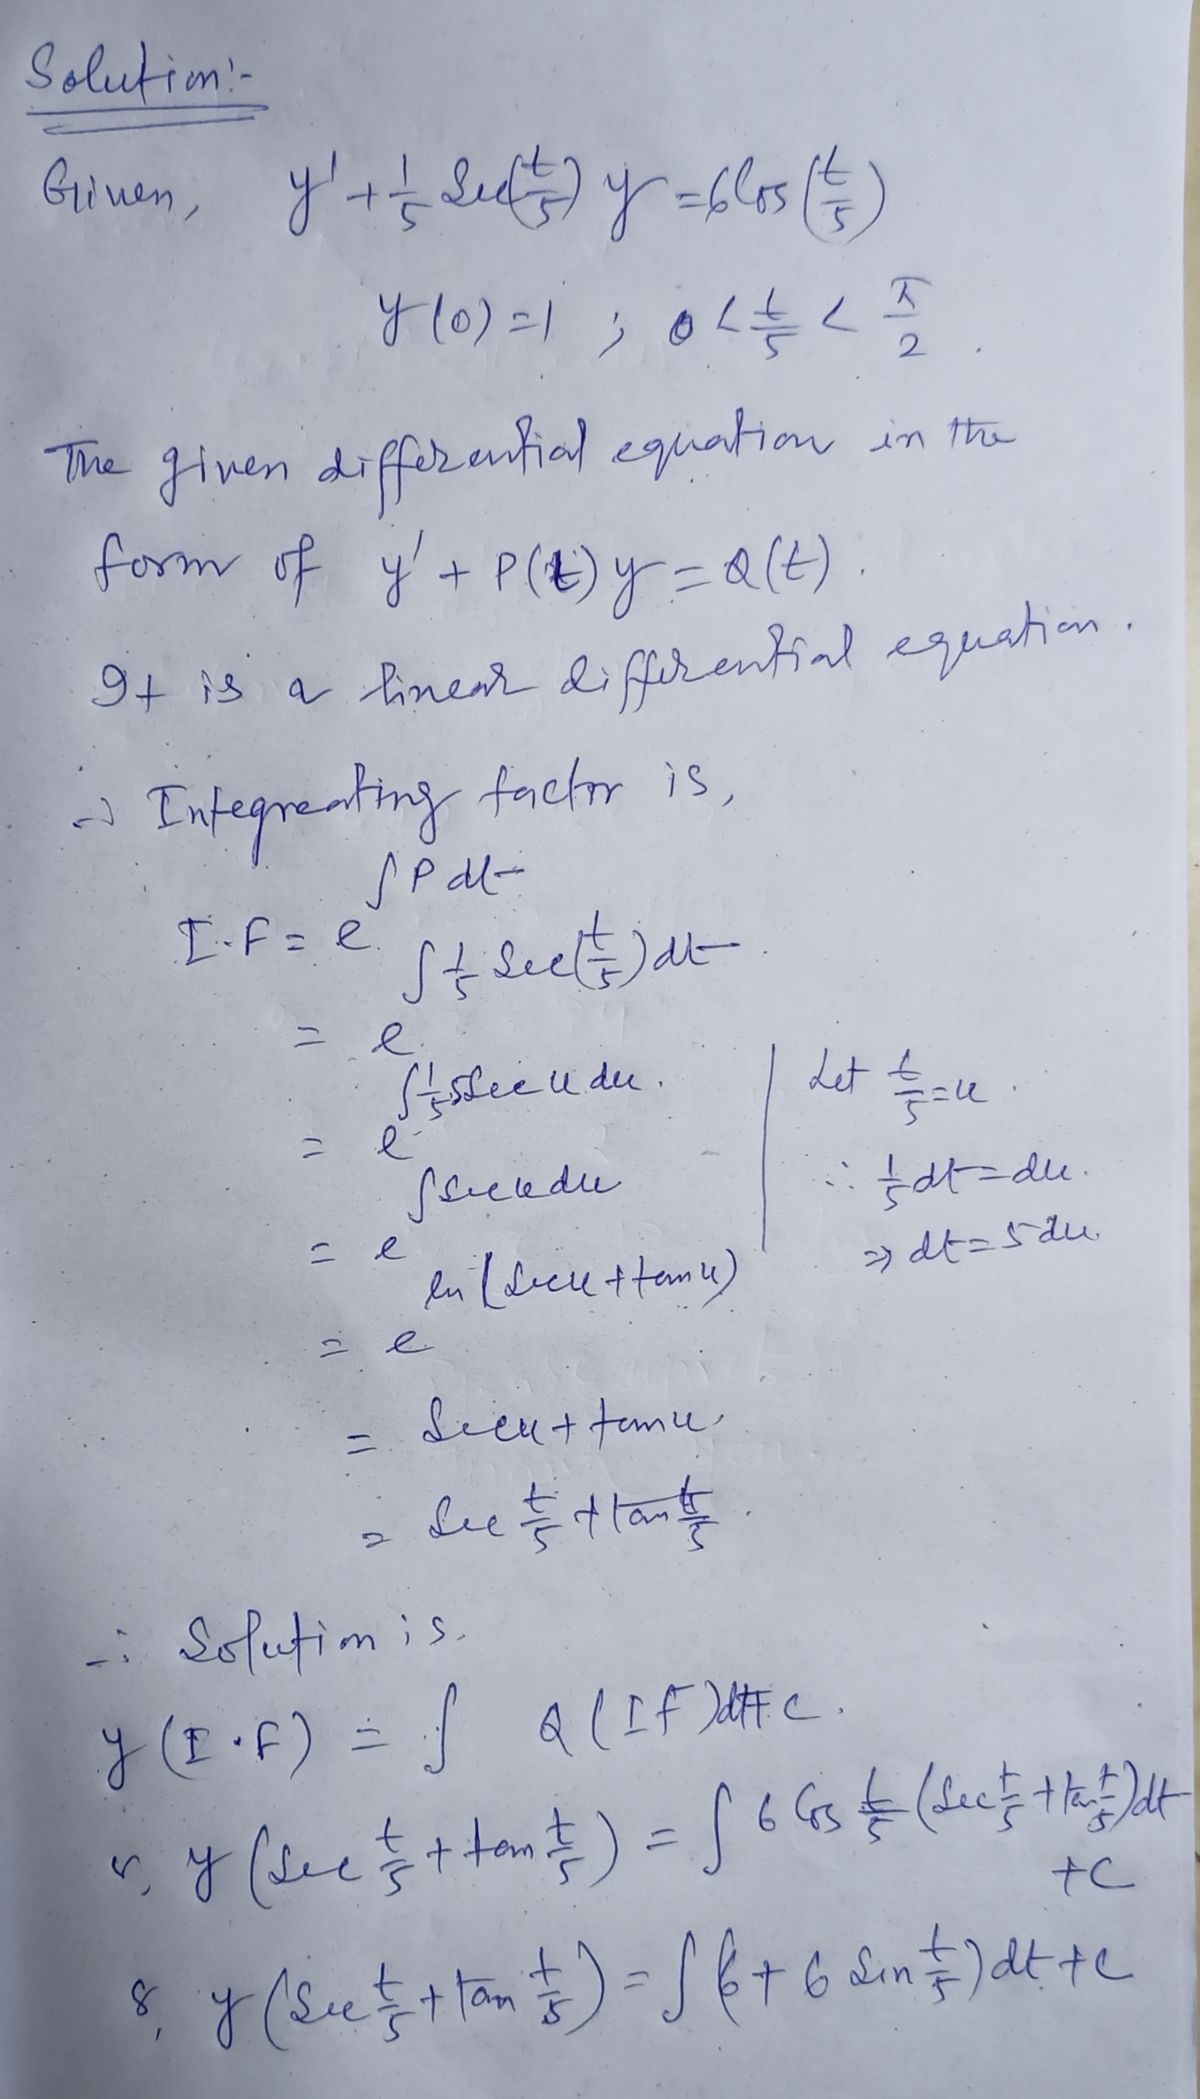 Solution:-
Given, y' + 1/5 Sec(t/5) y = 6 Cos(t/5)
y(0) = 1 ; 0 < t/5 < π/2 .
The given differential equation in the
form of y' + P(t) y = Q(t) .
It is a linear differential equation.
∴ Integreating factor is,
I.F = e^∫P dt
= e^∫1/5 Sec(t/5) dt
= e^∫1/5 5 Sec u du . | Let t/5 = u .
= e^∫Sec u du | ∴ 1/5 dt = du .
= e^ln(Sec u + tan u) | ⇒ dt = 5 du .
= Sec u + tan u .
= Sec t/5 + tan t/5 .
∴ Solution is.
y (I.F) = ∫ Q (IF) dt + c .
or, y (Sec t/5 + tan t/5) = ∫ 6 Cos t/5 (Sec t/5 + tan t/5) dt
+ C
or, y (Sec t/5 + tan t/5) = ∫ (6 + 6 Sin t/5) dt + c